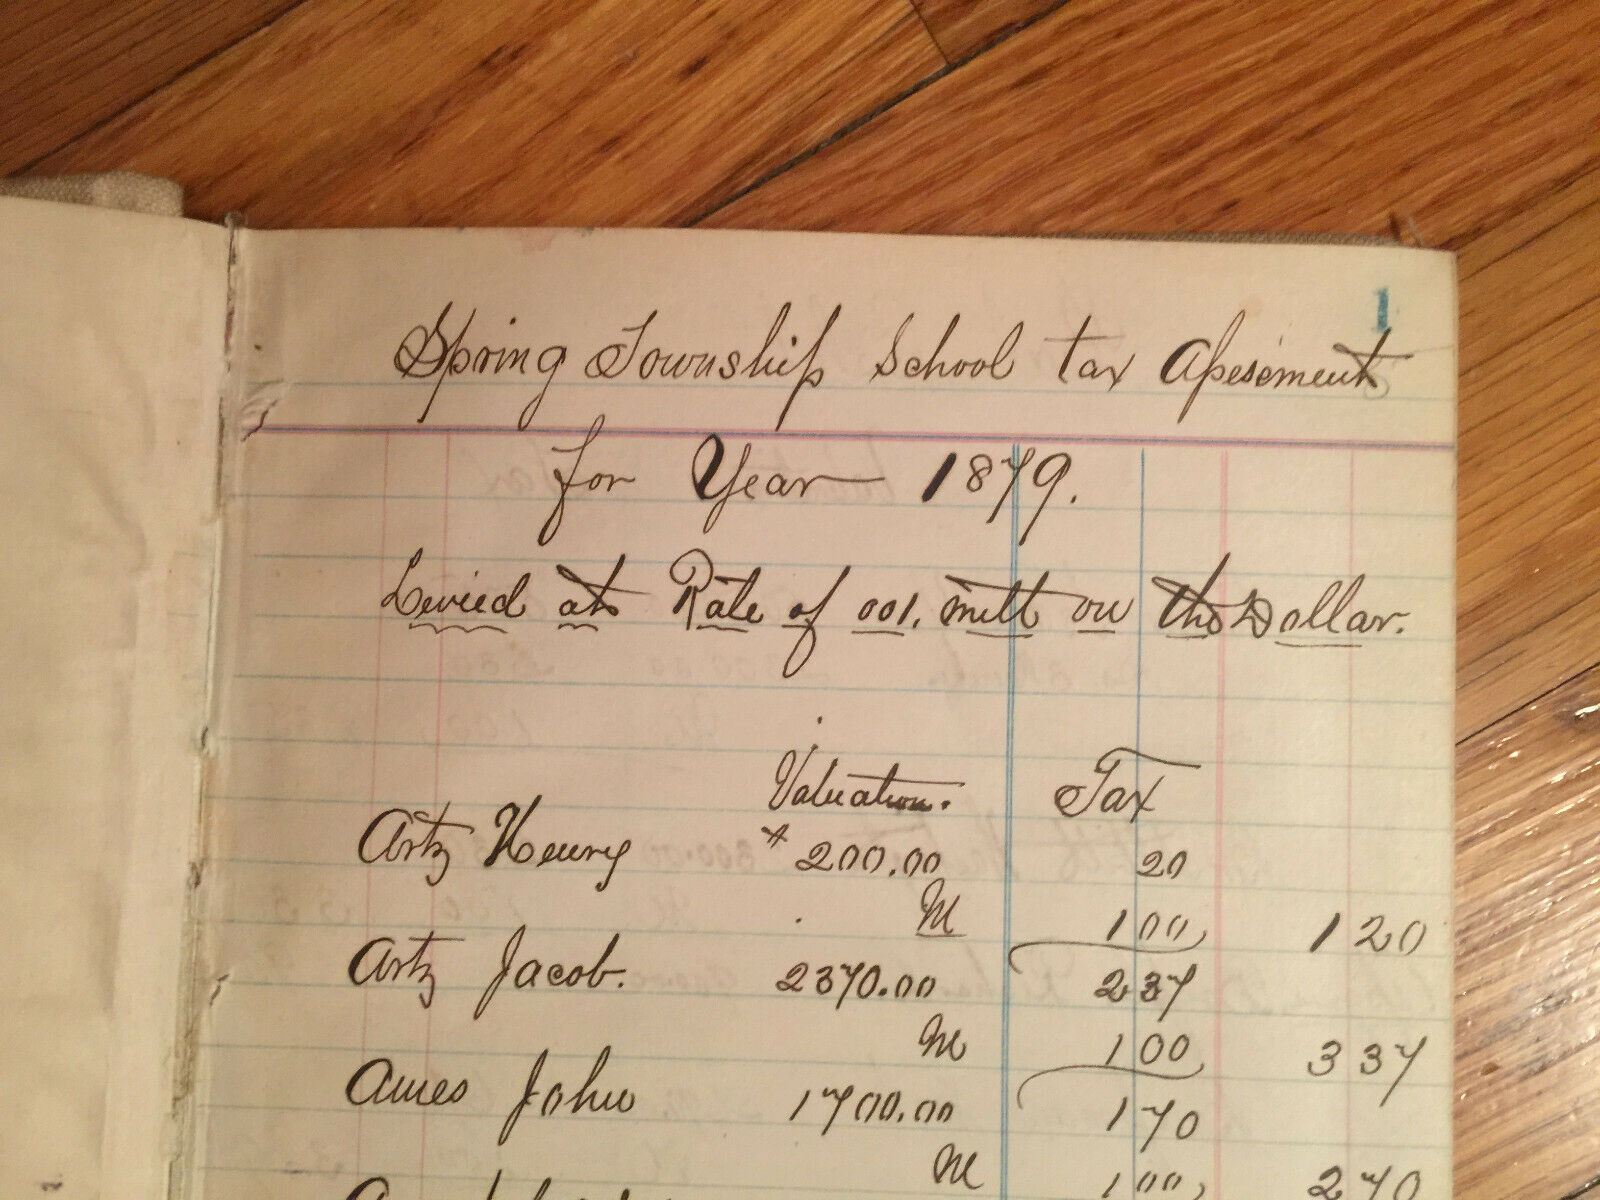 1
Spring Township School tax Apesement
for Year 1879.
Levied at Rate of 001. mill on the Dollar.
Valuation. Tax
Artz Henry $200.00 20
M 100 120
Artz Jacob. 2370.00 237
M 100 337
Ames John 1700.00 170
M 100 270